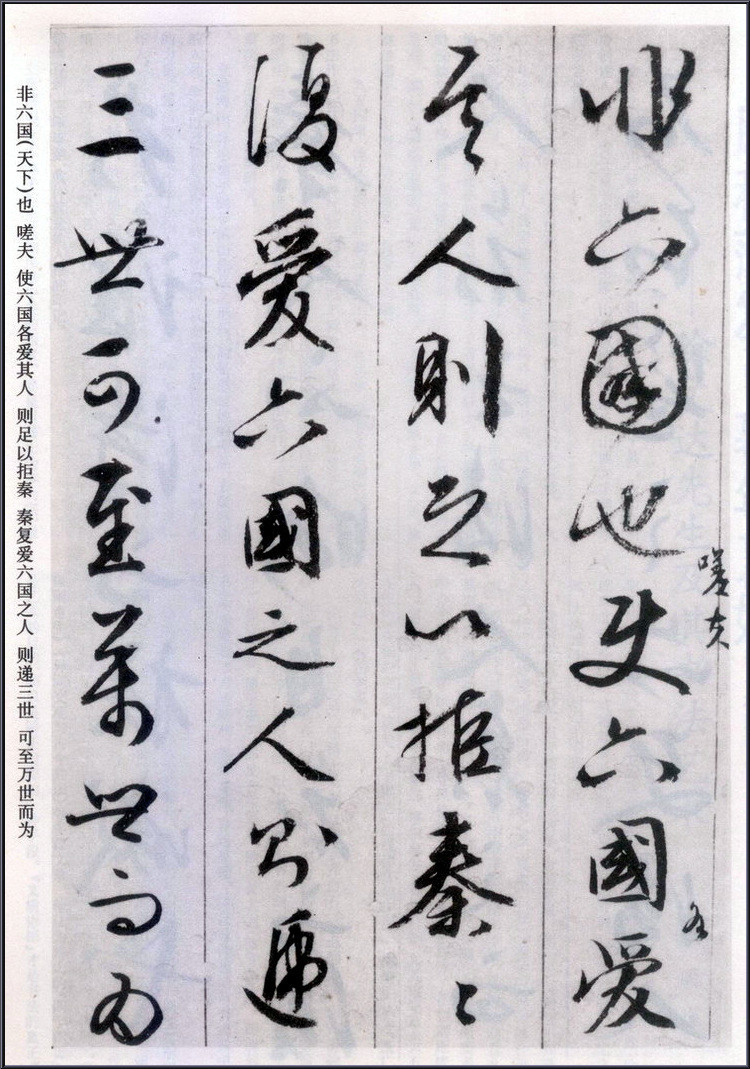 非六國也嗟夫使六國各愛
其人則足以拒秦〻
復愛六國之人則遞
三世可至萬世而為
非六国(天下)也 嗟夫 使六国各爱其人 则足以拒秦 秦复爱六国之人 则递三世 可至万世而为